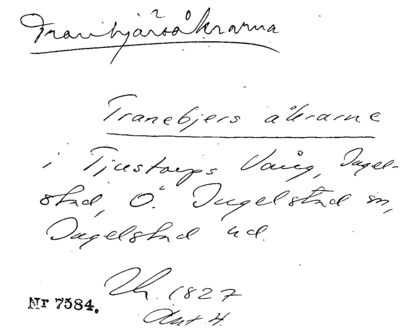 Tranebjärsåkrarna
Tranebjers åkrarne
i Tjustorps Vång, Ingel-
stad, Ö. Ingelstad sn,
Ingelstad hd.
1827
Akt 4.
Nr 7584.